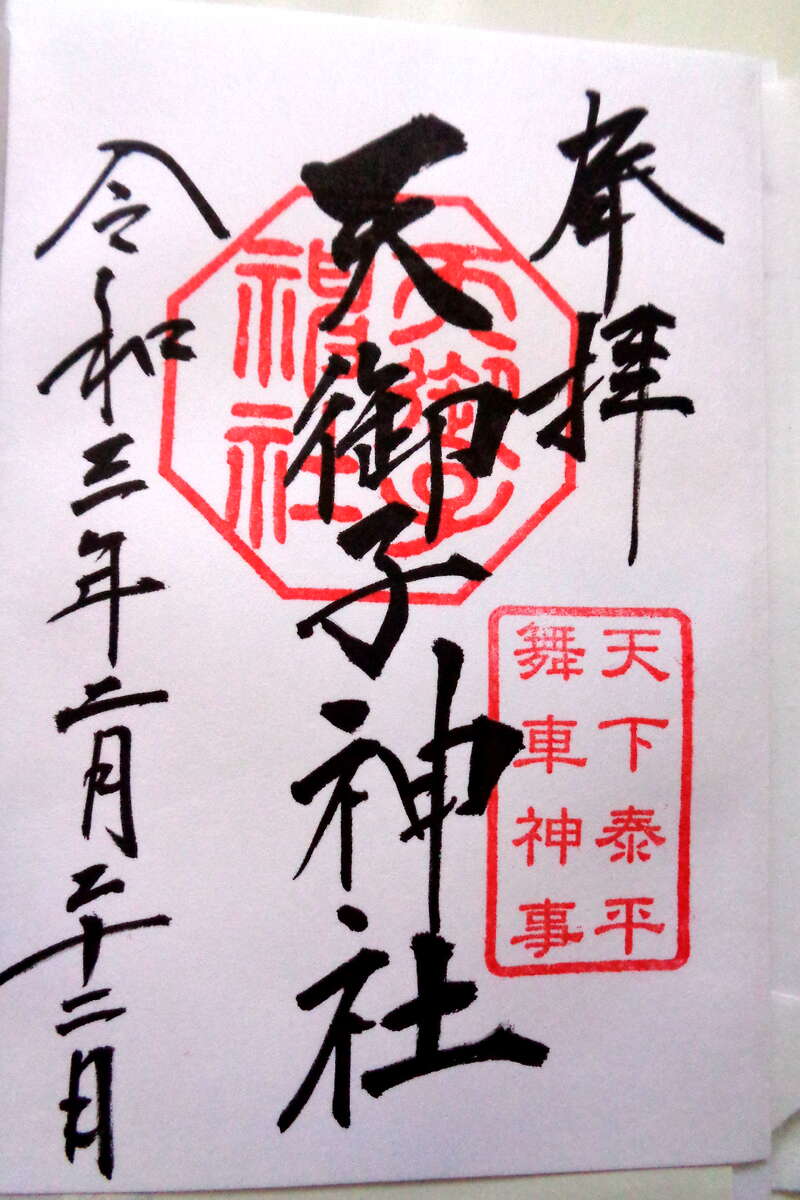 奉拝
天下泰平
舞車神事
天御子神社
天御子
神社
令和三年二月二十二日